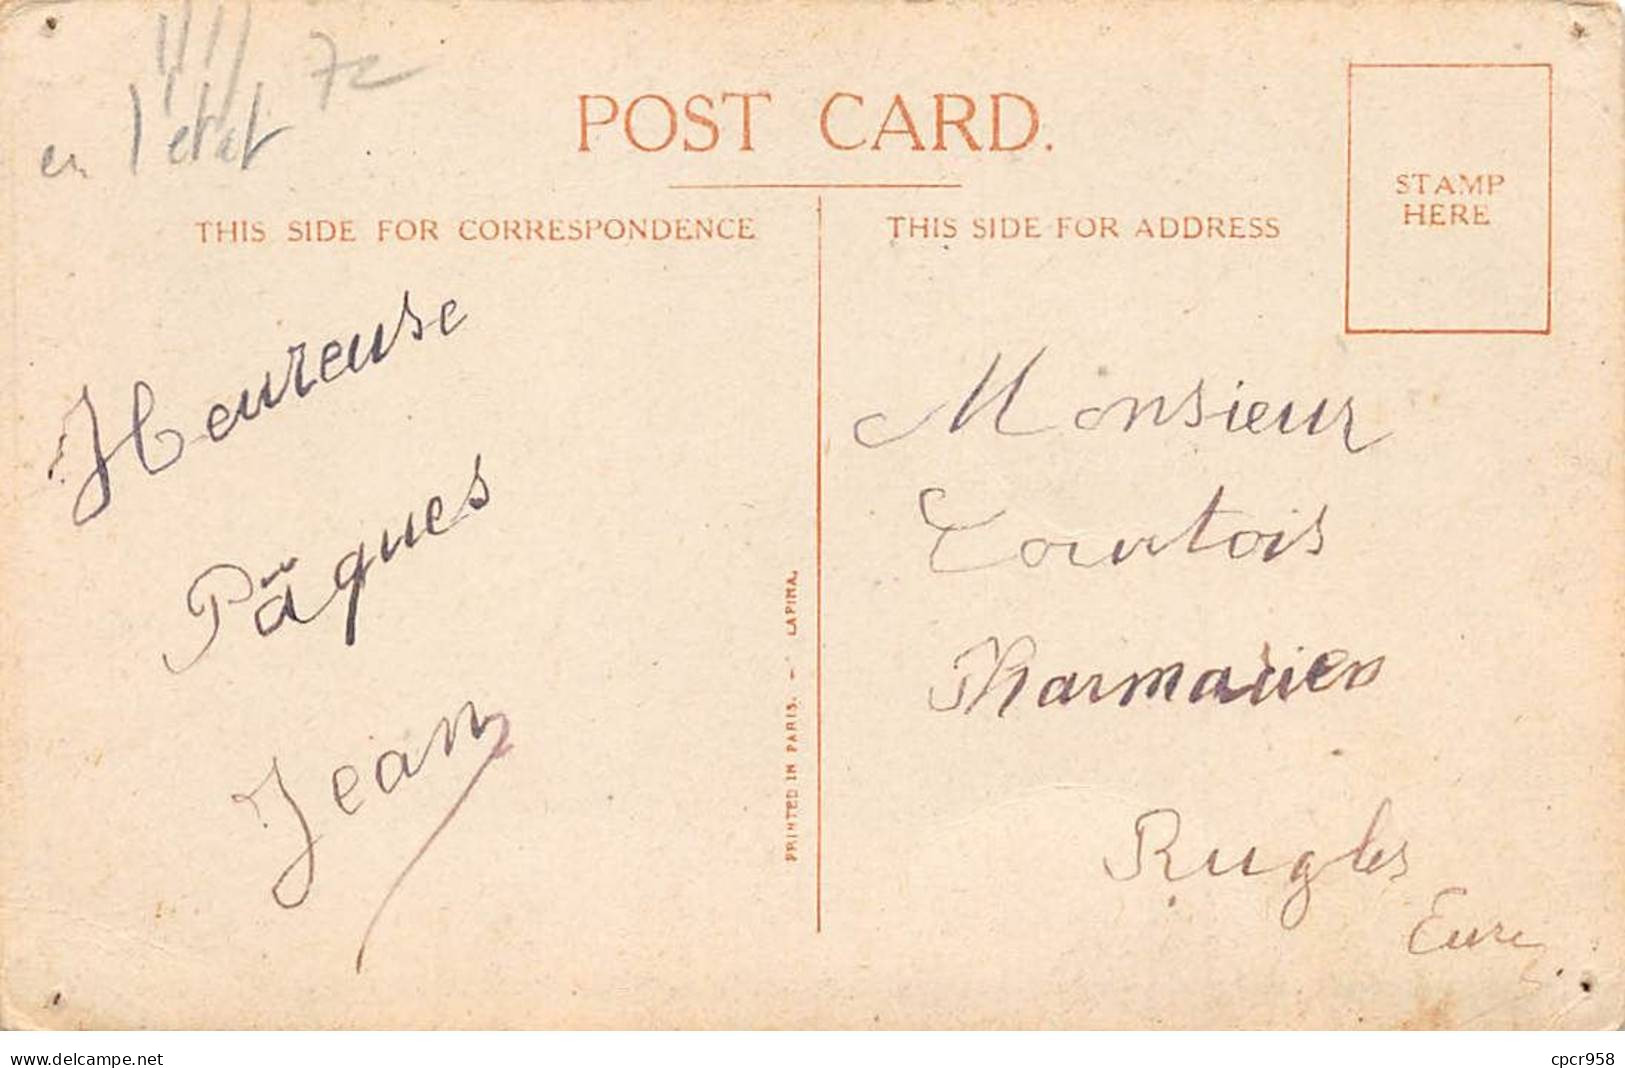 en l'etat 7c
POST CARD.
THIS SIDE FOR CORRESPONDENCE
THIS SIDE FOR ADDRESS
STAMP
HERE
Heureuse
Pâques
Jean
PRINTED IN PARIS. – LAPINA.
Monsieur
Courtois
Pharmacien
Rugles
Eure
www.delcampe.net
cpcr958